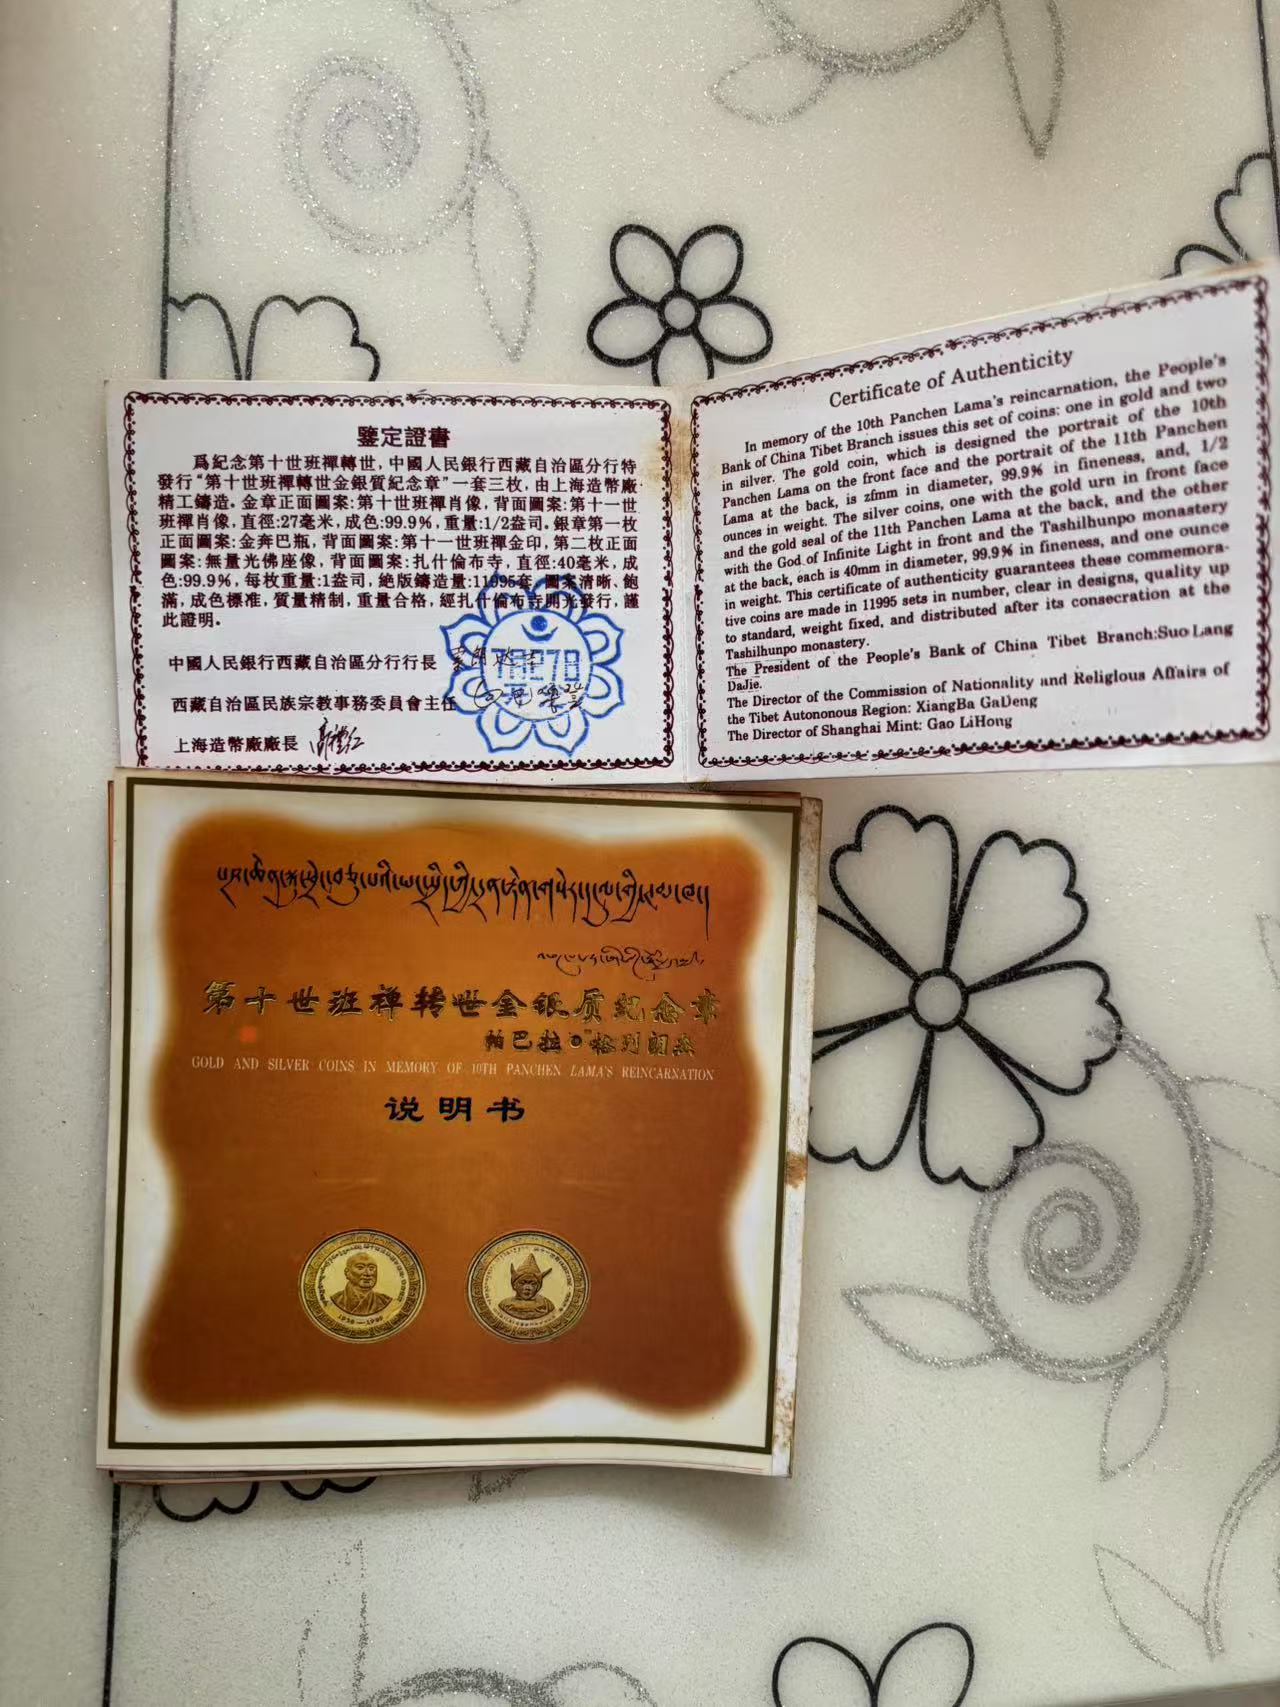 鑒定證書
爲紀念第十世班禪轉世,中國人民銀行西藏自治區分行特
發行“第十世班禪轉世金銀質紀念章”一套三枚,由上海造幣廠
精工鑄造。金章正面圖案:第十世班禪肖像,背面圖案:第十一世
班禪肖像,直徑:27毫米,成色:99.9%,重量:1/2盎司。銀章第一枚
正面圖案:金奔巴瓶,背面圖案:第十一世班禪金印,第二枚正面
圖案:無量光佛座像,背面圖案:扎什倫布寺,直徑:40毫米,成
色:99.9%,每枚重量:1盎司,絕版鑄造量:11995套,圖案清晰、飽
滿,成色標准,質量精制,重量合格,經扎什倫布寺開光發行,謹
此證明。
中國人民銀行西藏自治區分行行長
西藏自治區民族宗教事務委員會主任
上海造幣廠廠長
Certificate of Authenticity
In memory of the 10th Panchen Lama's reincarnation, the People's
Bank of China Tibet Branch issues this set of coins: one in gold and two
in silver. The gold coin, which is designed the portrait of the 10th
Panchen Lama on the front face and the portrait of the 11th Panchen
Lama at the back, is zfmm in diameter, 99.9% in fineness, and, 1/2
ounces in weight. The silver coins, one with the gold urn in front face
and the gold seal of the 11th Panchen Lama at the back, and the other
with the God of Infinite Light in front and the Tashilhunpo monastery
at the back, each is 40mm in diameter, 99.9% in fineness, and one ounce
in weight. This certificate of authenticity guarantees these commemora-
tive coins are made in 11995 sets in number, clear in designs, quality up
to standard, weight fixed, and distributed after its consecration at the
Tashilhunpo monastery.
The President of the People's Bank of China Tibet Branch:Suo Lang
DaJie.
The Director of the Commission of Nationality and Religlous Affairs of
the Tibet Autononous Region: XiangBa GaDeng
The Director of Shanghai Mint: Gao LiHong
第十世班禅转世金银质纪念章
帕巴拉·格列朗杰
GOLD AND SILVER COINS IN MEMORY OF 10TH PANCHEN LAMA'S REINCARNATION
说明书